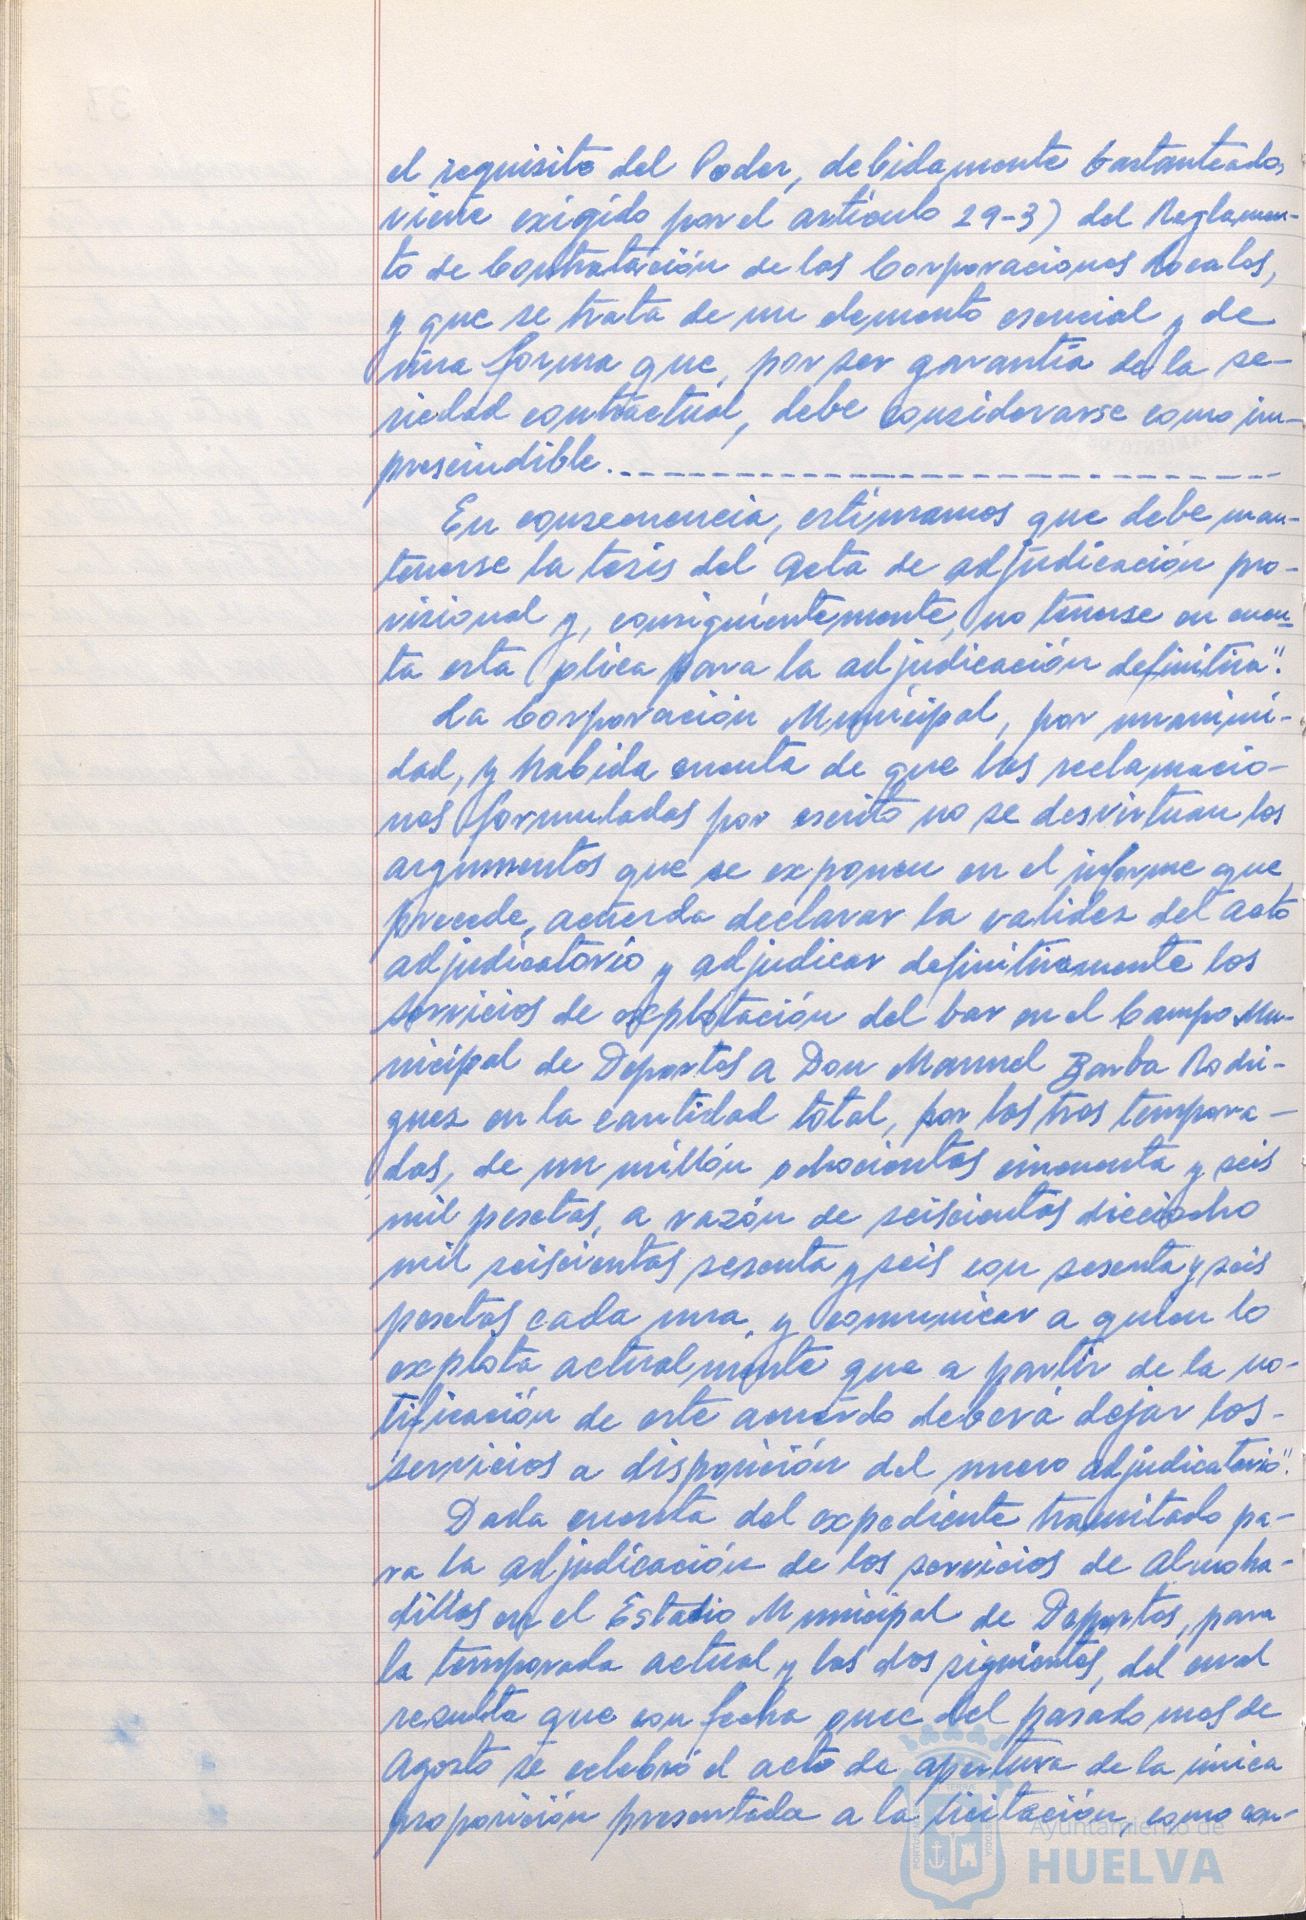 el requisito del Poder, debidamente bastanteado,
viene exigido por el artículo 29-3) del Reglamen-
to de Contratación de las Corporaciones Locales,
y que se trata de un elemento esencial y de
una forma que, por ser garantía de la se-
riedad contractual, debe considerarse como im-
prescindible.
En consecuencia, estimamos que debe man-
tenerse la tesis del Acta de adjudicación pro-
visional y, consiguientemente, no tenerse en cuen-
ta esta plica para la adjudicación definitiva".
La Corporación Municipal, por unanimi-
dad, y habida cuenta de que las reclamacio-
nes formuladas por escrito no se desvirtuan los
argumentos que se exponen en el informe que
precede, acuerda declarar la validez del acto
adjudicatorio y adjudicar definitivamente los
servicios de explotación del bar en el Campo Mu-
nicipal de Deportes a Don Manuel Barba Rodri-
guez en la cantidad total, por las tres tempora-
das, de un millón ochocientas cincuenta y seis
mil pesetas, a razón de seiscientas dieciocho
mil seiscientas sesenta y seis con sesenta y seis
pesetas cada una, y comunicar a quien lo
explota actualmente que a partir de la no-
tificación de este acuerdo deberá dejar los-
servicios a disposición del nuevo adjudicatorio".
Dada cuenta del expediente tramitado pa-
ra la adjudicación de los servicios de almoha-
dillas en el Estadio Municipal de Deportes, para
la temporada actual y las dos siguientes, del cual
resulta que con fecha once del pasado mes de
Agosto se celebró el acto de apertura de la única
proposición presentada a la licitación, como con-
Ayuntamiento de
HUELVA